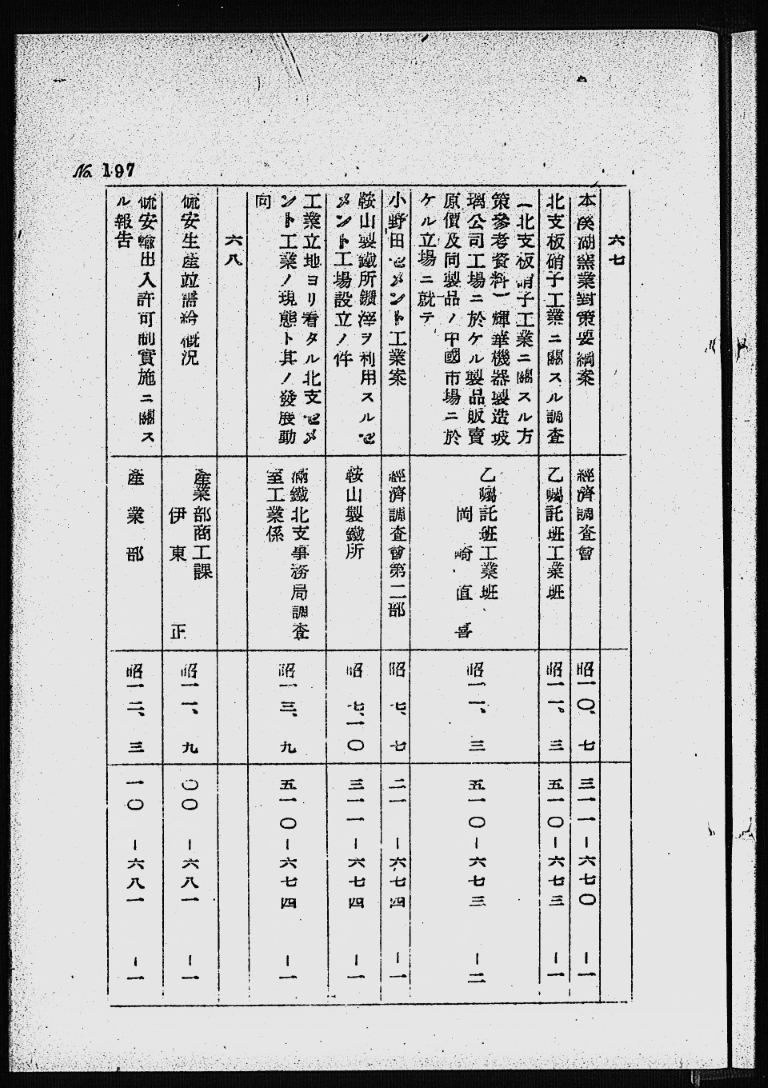 No. 197
六七
本溪湖窯業對策要綱案
經濟調査會
昭一〇、七
三一一―六七〇―一
北支板硝子工業ニ關スル調査
乙囑託班工業班
昭一一、三
五一〇―六七三―一
「北支板硝子工業ニ關スル方
策參考資料」輝華機器製造玻
璃公司工場ニ於ケル製品販賣
原價及同製品ノ中國市場ニ於
ケル立場ニ就テ
乙囑託班工業班
岡崎直喜
昭一一、三
五一〇―六七三―二
小野田セメント工業案
經濟調査會第二部
昭七、七
二一―六七四―一
鞍山製鐵所鑛滓ヲ利用スルセ
メント工場設立ノ件
鞍山製鐵所
昭七、一〇
三一一―六七四―一
工業立地ヨリ看タル北支セメ
ント工業ノ現態ト其ノ發展動
向
滿鐵北支事務局調査
室工業係
昭一三、九
五一〇―六七四―一
六八
硫安生産竝需給概況
產業部商工課
伊東正
昭一一、九
〇〇―六八一―一
硫安輸出入許可制實施ニ關ス
ル報告
產業部
昭一二、三
一〇―六八一―一